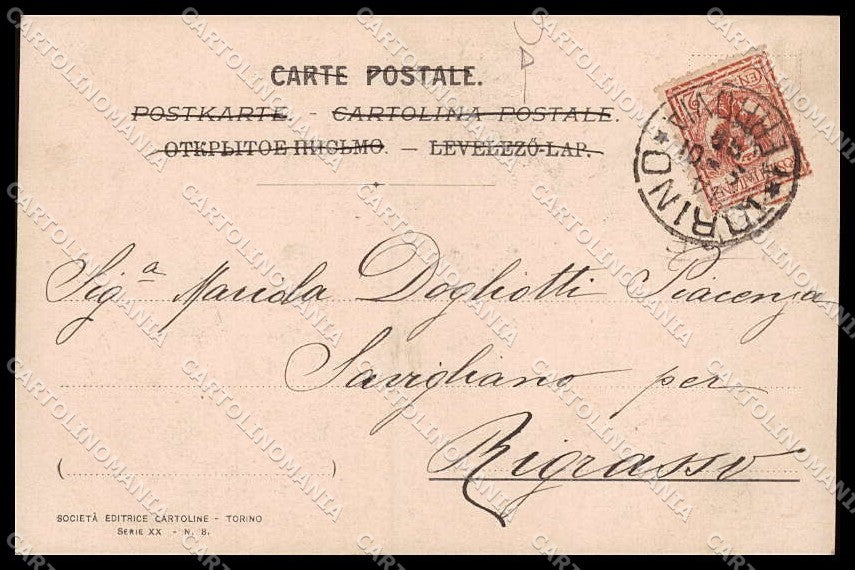 CARTE POSTALE.
POSTKARTE. - CARTOLINA POSTALE.
ОТКРЫТОЕ ПИСЬМО. - LEVELEZŐ-LAP.
TORINO
FERROVIA
Sigª Marida Dogliotti Piacenza
Savigliano per
Rigrasso
( )
SOCIETÀ EDITRICE CARTOLINE - TORINO
SERIE XX - N. 8.
CARTOLINOMANIA